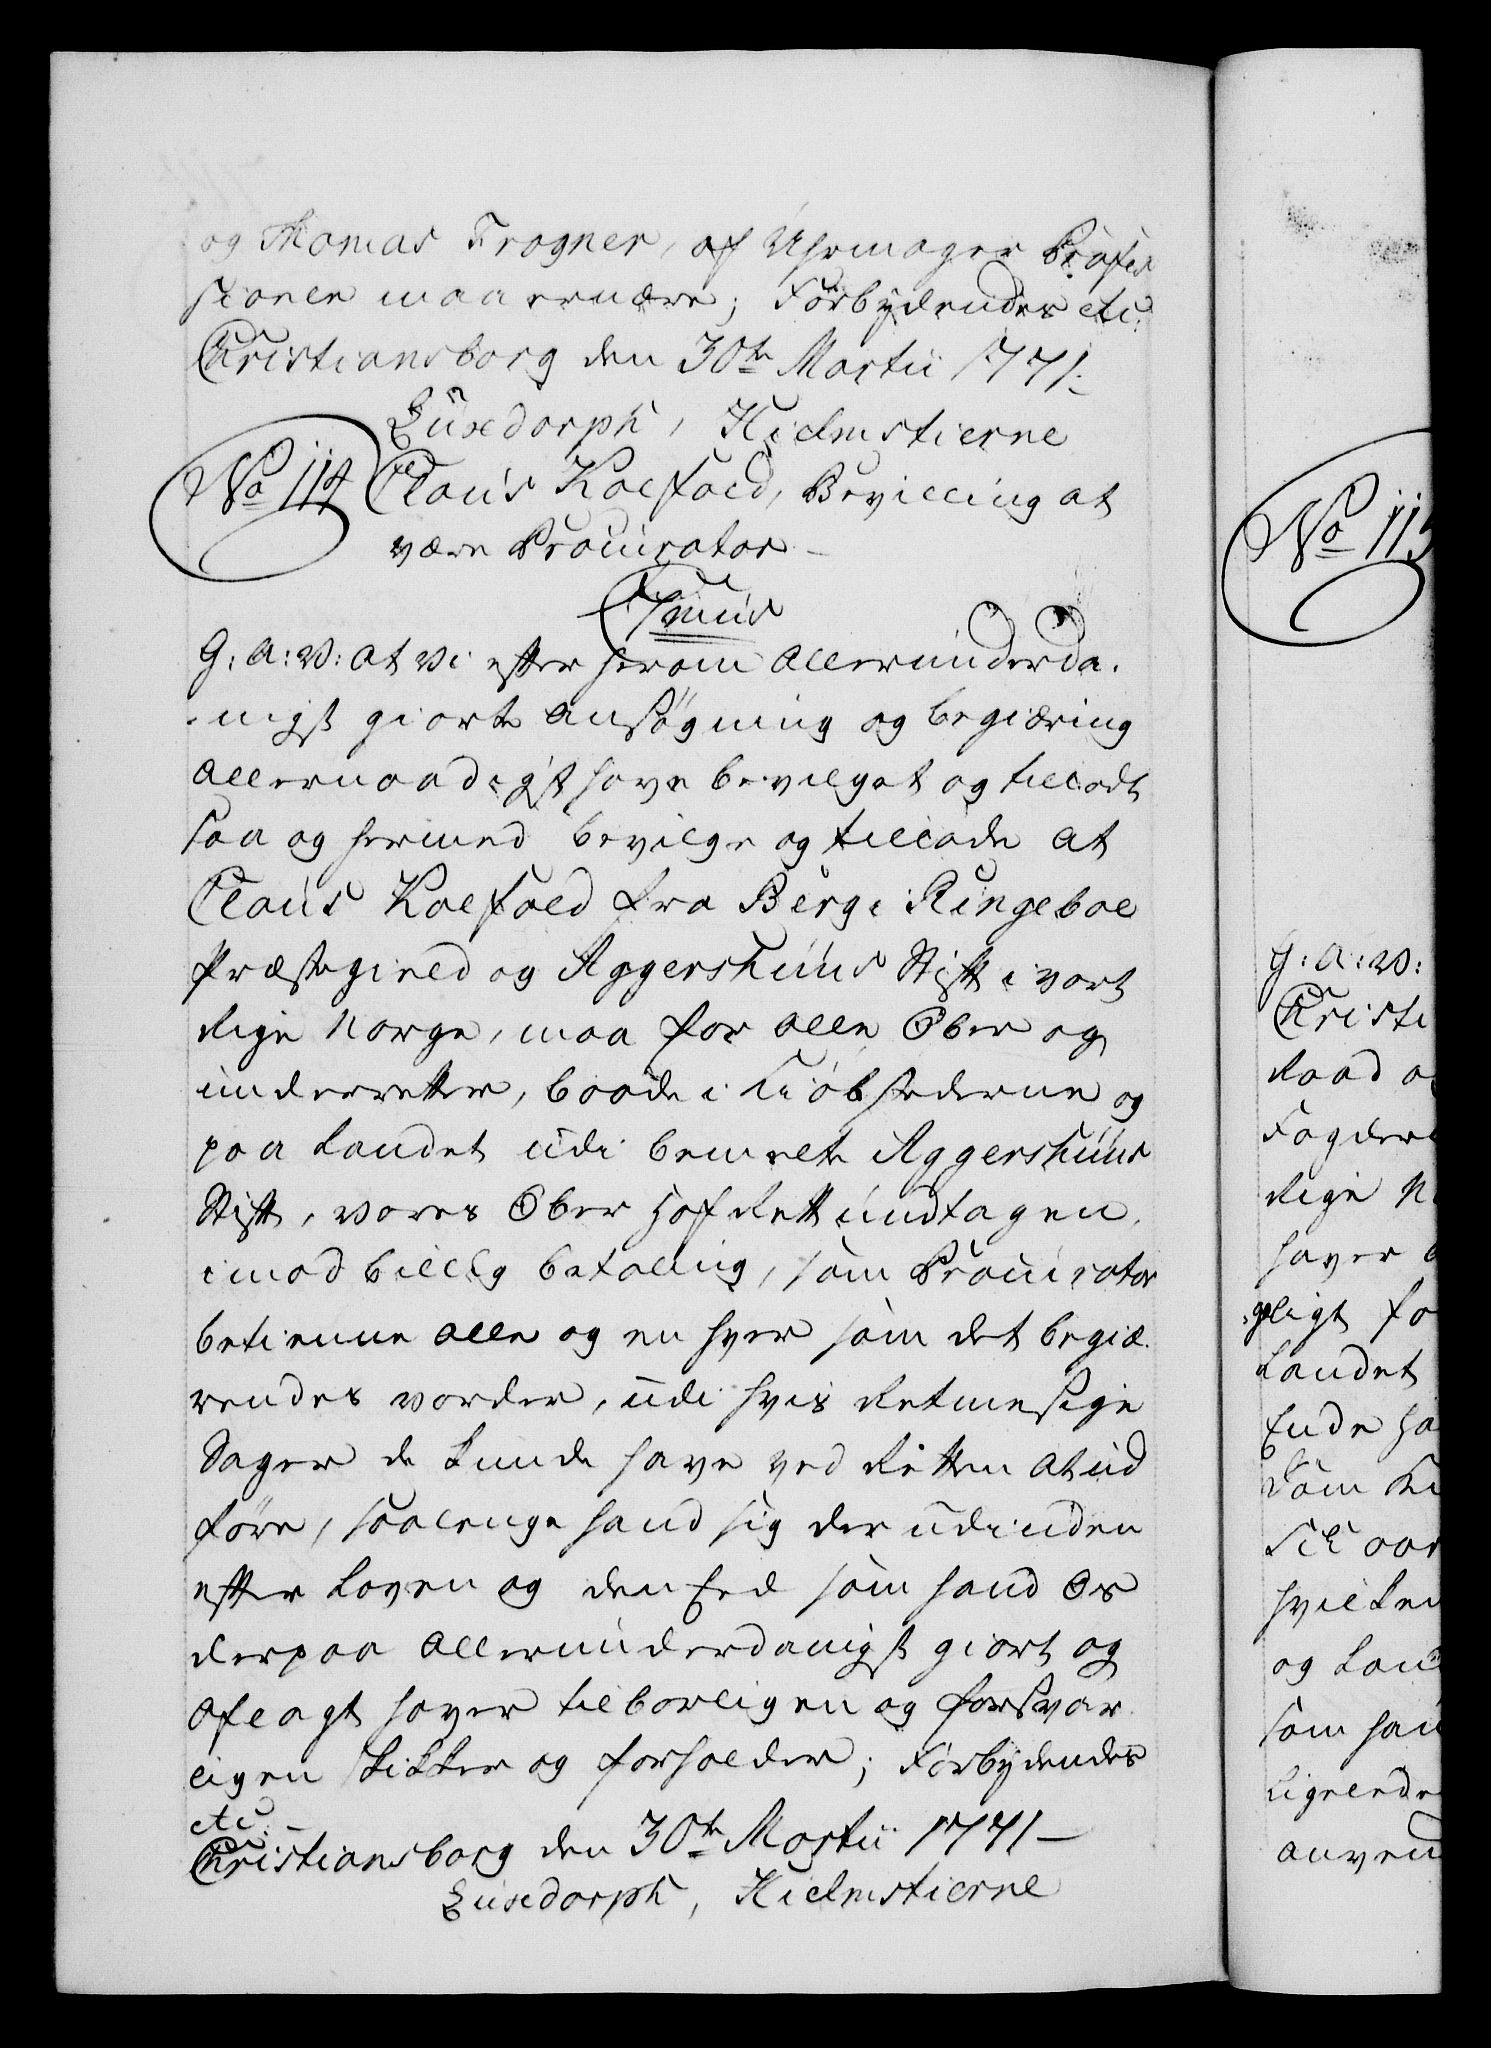 og Thomas Trogner, af Uhrmager Profes
sionen maa ernære; Forbydendes etc:
Christiansborg den 30te Martii 1771.
Luxdorph, Hielmstierne
No 114 Claus Kolfoed, Bevilling at
være Procurator
7mus
G: A: V: at Vi efter herom Allerunderda-
-nigst giorte Ansøgning og begiæring
Allernaadigst have bevilget og tilladt
saa og hermed bevilge og tillade at
Claus Kolfoed fra Berg i Ringeboe
Præstegield og Aggershuus Stift i vort
Rige Norge, maa for alle Ober og
underretter, baade i Kiøbstæderne og
paa Landet udi bemelte Aggershuus
Stift, vores Ober Hof Rett undtagen,
imod billig betaling, som Procurator
betienne alle og en hver som det begiæ-
rendes vorder, udi hvis Retmesige
Sager de kunde have ved Retten at ud
føre, saalenge hand sig der udi inden
efter Loven og den Eed som hand Os
derpaa Allerunderdanigst giort og
aflagt haver tilbørligen og forsvar-
ligen skikker og forholder; Forbydendes
etc:
Christiansborg den 30te Martii 1771
Luxdorph, Hielmstierne
No 115
G: A: V:
Christi
Raad o
Fogder
Rige N
haver
-gligt fo
Landet
Ende ha
Som
hvilken
og Lan
som han
anven